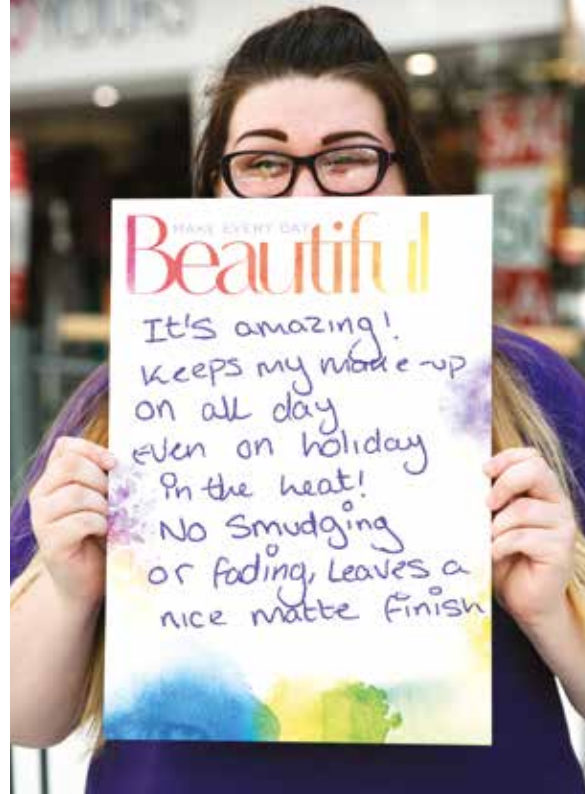 YOURS
MAKE EVERY DAY
Beautiful
It's amazing!
Keeps my make-up
on all day
even on holiday
in the heat!
No Smudging
or fading, Leaves a
nice matte finish